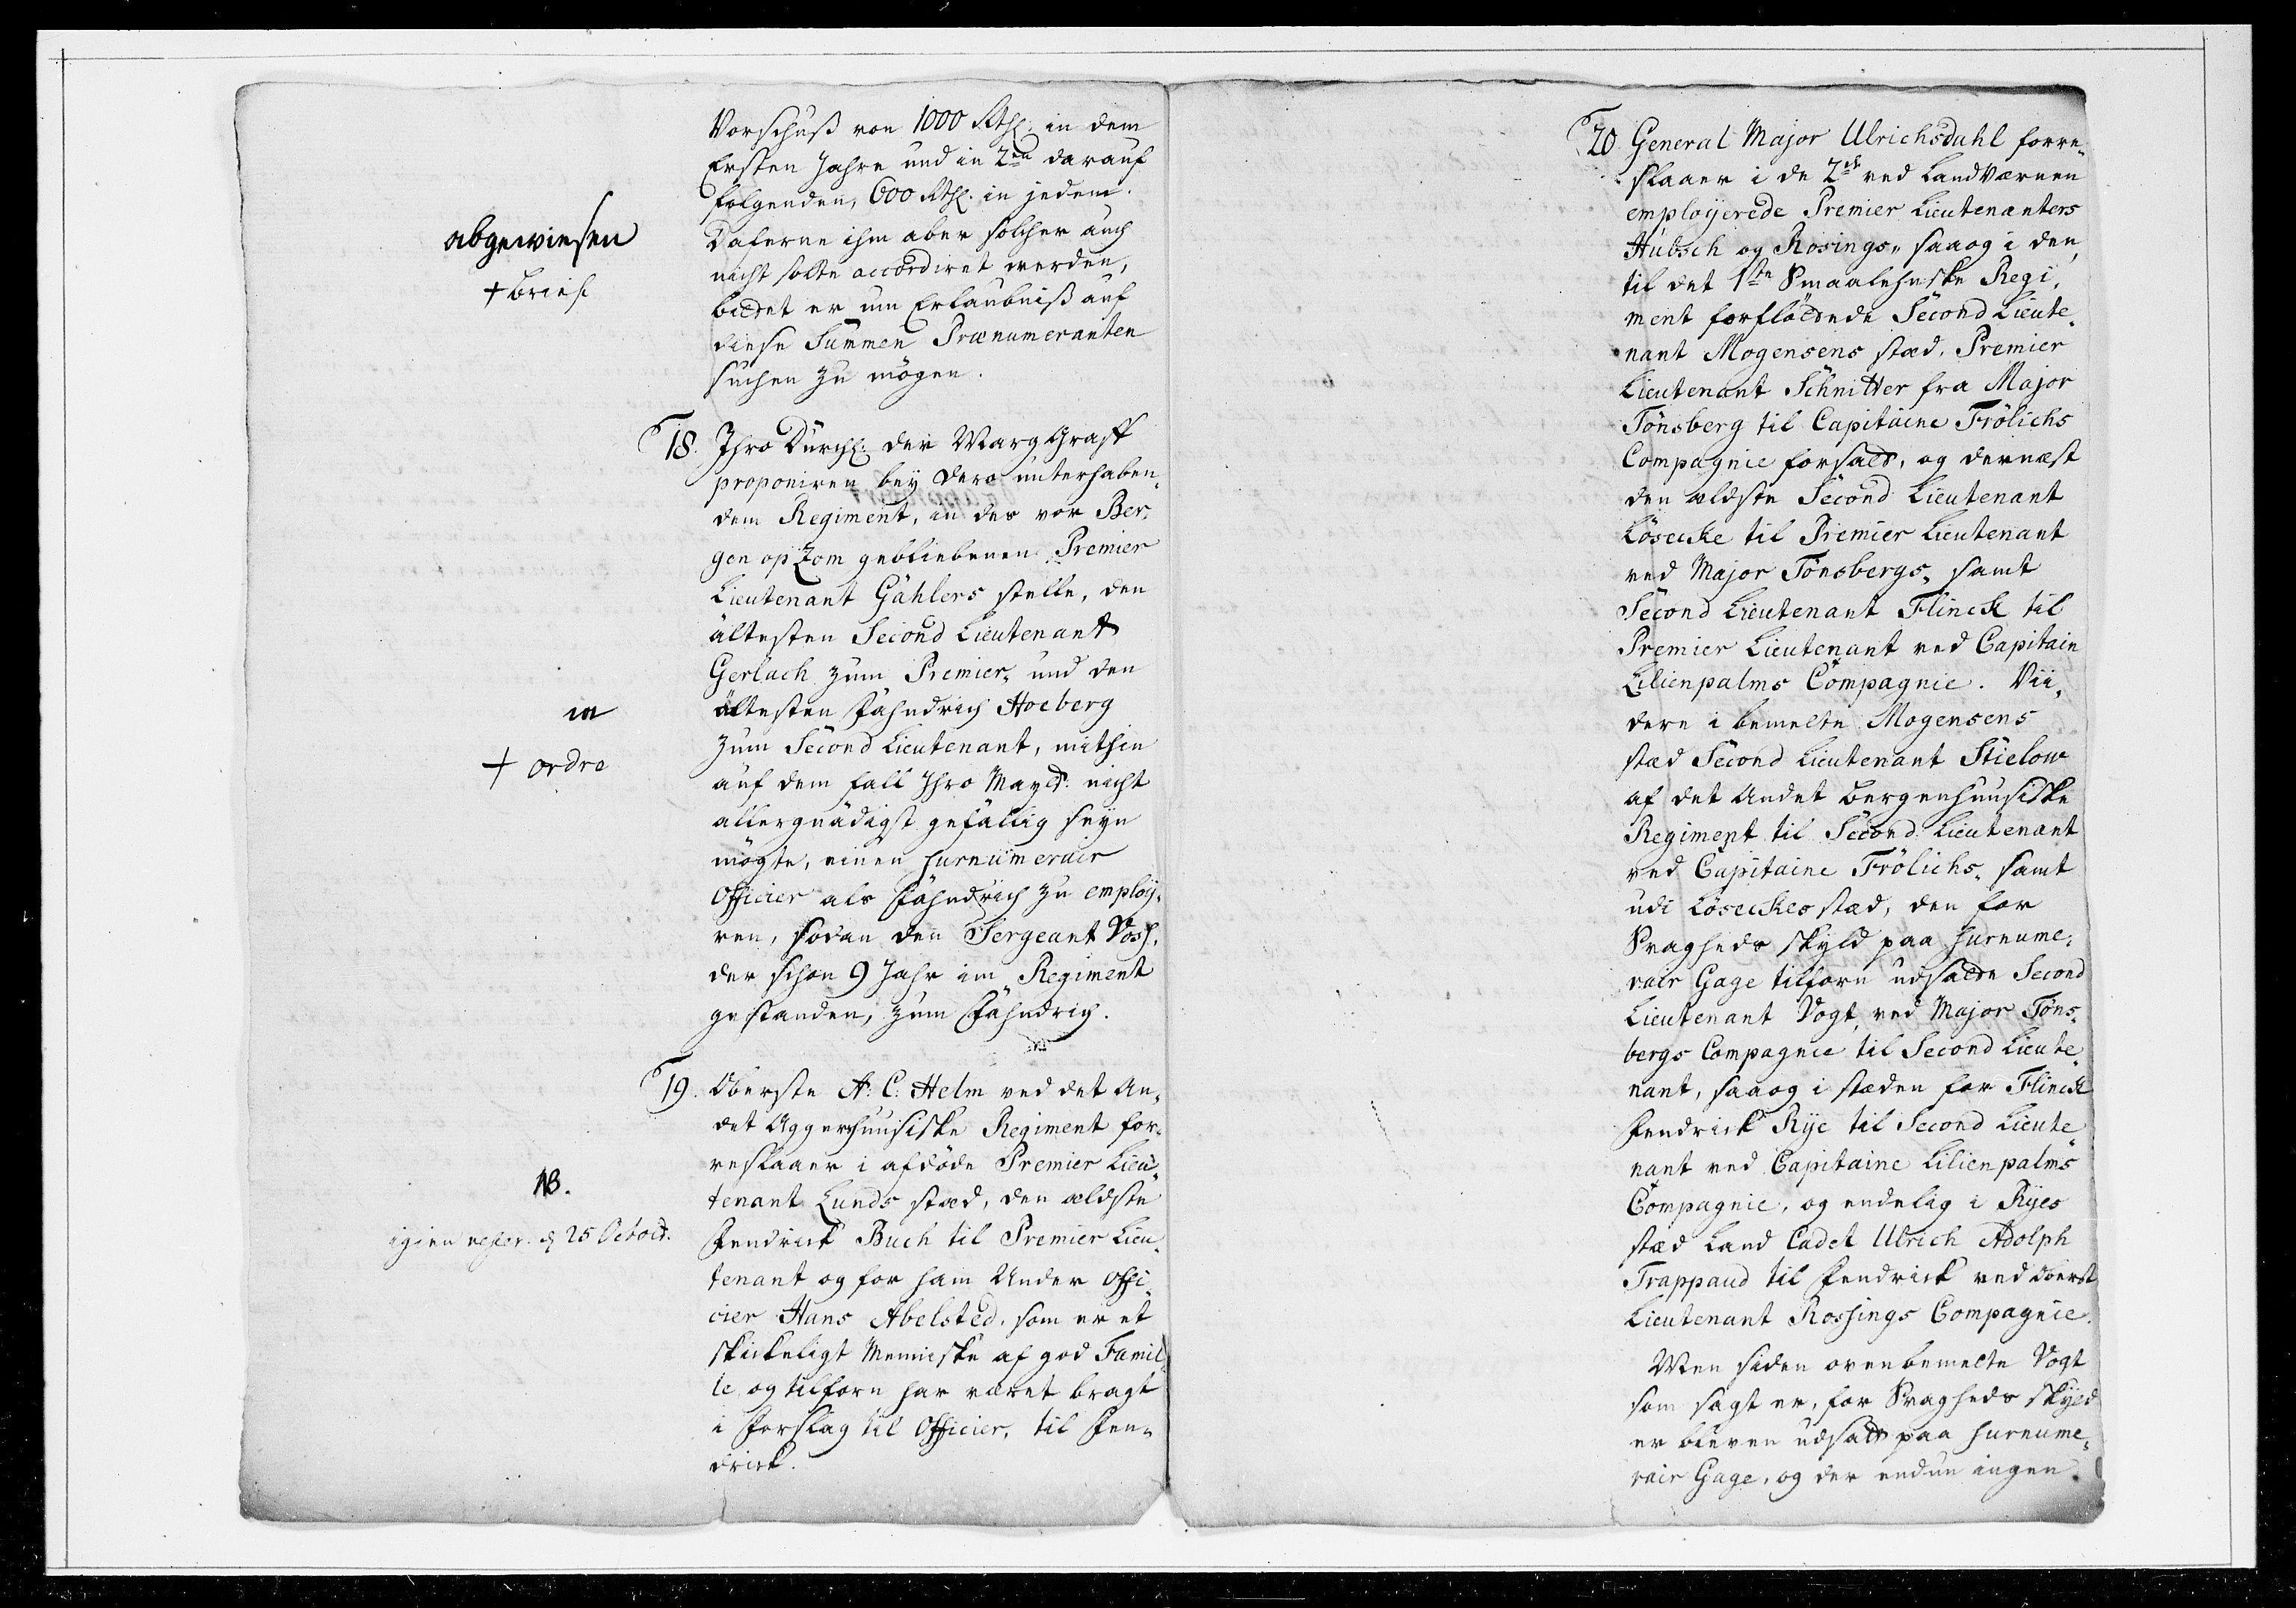 Vorschuß von 1000 Rthl. in dem
Ersten Jahre und in 2en darauf
folgenden, 600 Rthl. in jedem.
abgewiesen
Daferne ihm aber solcher auch
nicht solte accordiret werden,
+ brief
bittet er um Erlaubniß auf
diese Summen Prænumeranten
suchen zu mögen.
18. Ihro Durchl. der Marg Graff
proponiren bey dero unterhaben,
dem Regiment, in des vor Ber,
gen op Zom gebliebenen Premier
Lieutenant Gählers stelle, den
ältesten Second Lieutenant
Gerlach zum Premier, und den
in
ältesten Fähndrich Hoeberg
zum Second Lieutenant, mithin
+ ordre
auf dem fall Ihro Maytt. nicht
allergnädigst gefällig seyn
mögte, einen surnumerair
Officier als Fähndrich zu employ,
ren, sodan den Sergeant Voss.
der schon 9 Jahr im Regiment
gestanden, zum Fähndrich.
19. Oberste A: C: Helm ved det An,
det Aggershuusiske Regiment for,
reslaaer i afdöde Premier Lieu,
NB.
tenant Lunds stæd, den ældste
igien refer. d 25 Octobr.
Fendrick Buch til Premier Lieu,
tenant og for ham Under Offi,
cier Hans Abelsted, som er et
skickeligt Menniske af god Famil,
le og tilforn har været bragt
i Forslag til Officier, til Fen,
drick.
20 General Major Ulrichsdahl forre,
slaaer i de 2de ved Land Værnen
employerede Premier Lieutenanters
Hübsch og Rosings, saa og i den,
til det 1ste Smaalehnske Regi,
ment forflöttede Second Lieute,
nant Mogensens stæd, Premier
Lieutenant Schnitter fra Major
Tönsberg til Capitaine Frölichs
Compagnie forsatt, og dernæst
den ældste Second Lieutenant
Lösecke til Premier Lieutenant
ved Major Tönsbergs, samt
Second Lieutenant Flinck til
Premier Lieutenant ved Capitain
Lilienpalms Compagnie. Vii,
dere i bemelte Mogensens
stæd Second Lieutenant Stielow
af det Andet Bergenhuusiske
Regiment til Second Lieutenant
ved Capitaine Frölichs, samt
udi Löseckes stæd, den for
Svagheds skyld paa surnume,
rair Gage tilforn udsatte Second
Lieutenant Vogt, ved Major Töns,
bergs Compagnie til Second Lieute,
nant, saa og i stæden for Flinck
Fendrick Rye til Second Lieute,
nant ved Capitaine Lilienpalms
Compagnie, og endelig i Ryes
stæd Land Cadet Ulrich Adolph
Trappaud til Fendrick ved Oberst
Lieutenant Rossings Compagnie.
Men siden ovenbemelte Vogt
som sagt er, for Svagheds skyld
er bleven udsatt paa surnume,
rair Gage, og der endnu ingen